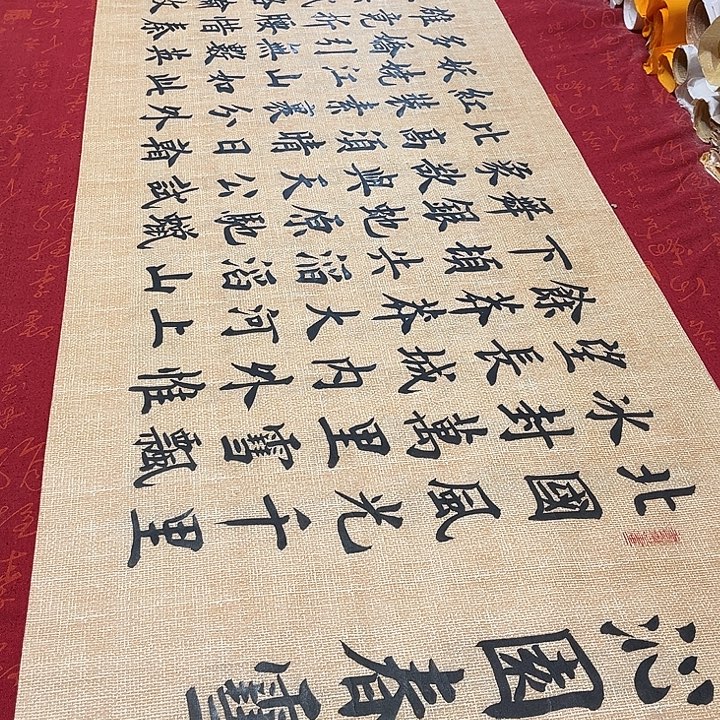 沁園春雪
北國風光千里
冰封萬里雪飄
望長城內外惟
餘莽莽大河上
下頓失滔滔山
舞銀蛇原馳蠟
象欲與天公試
比高須晴日
紅裝素裹分外
妖嬈江山如此
多嬌引無數英
雄競折腰惜秦